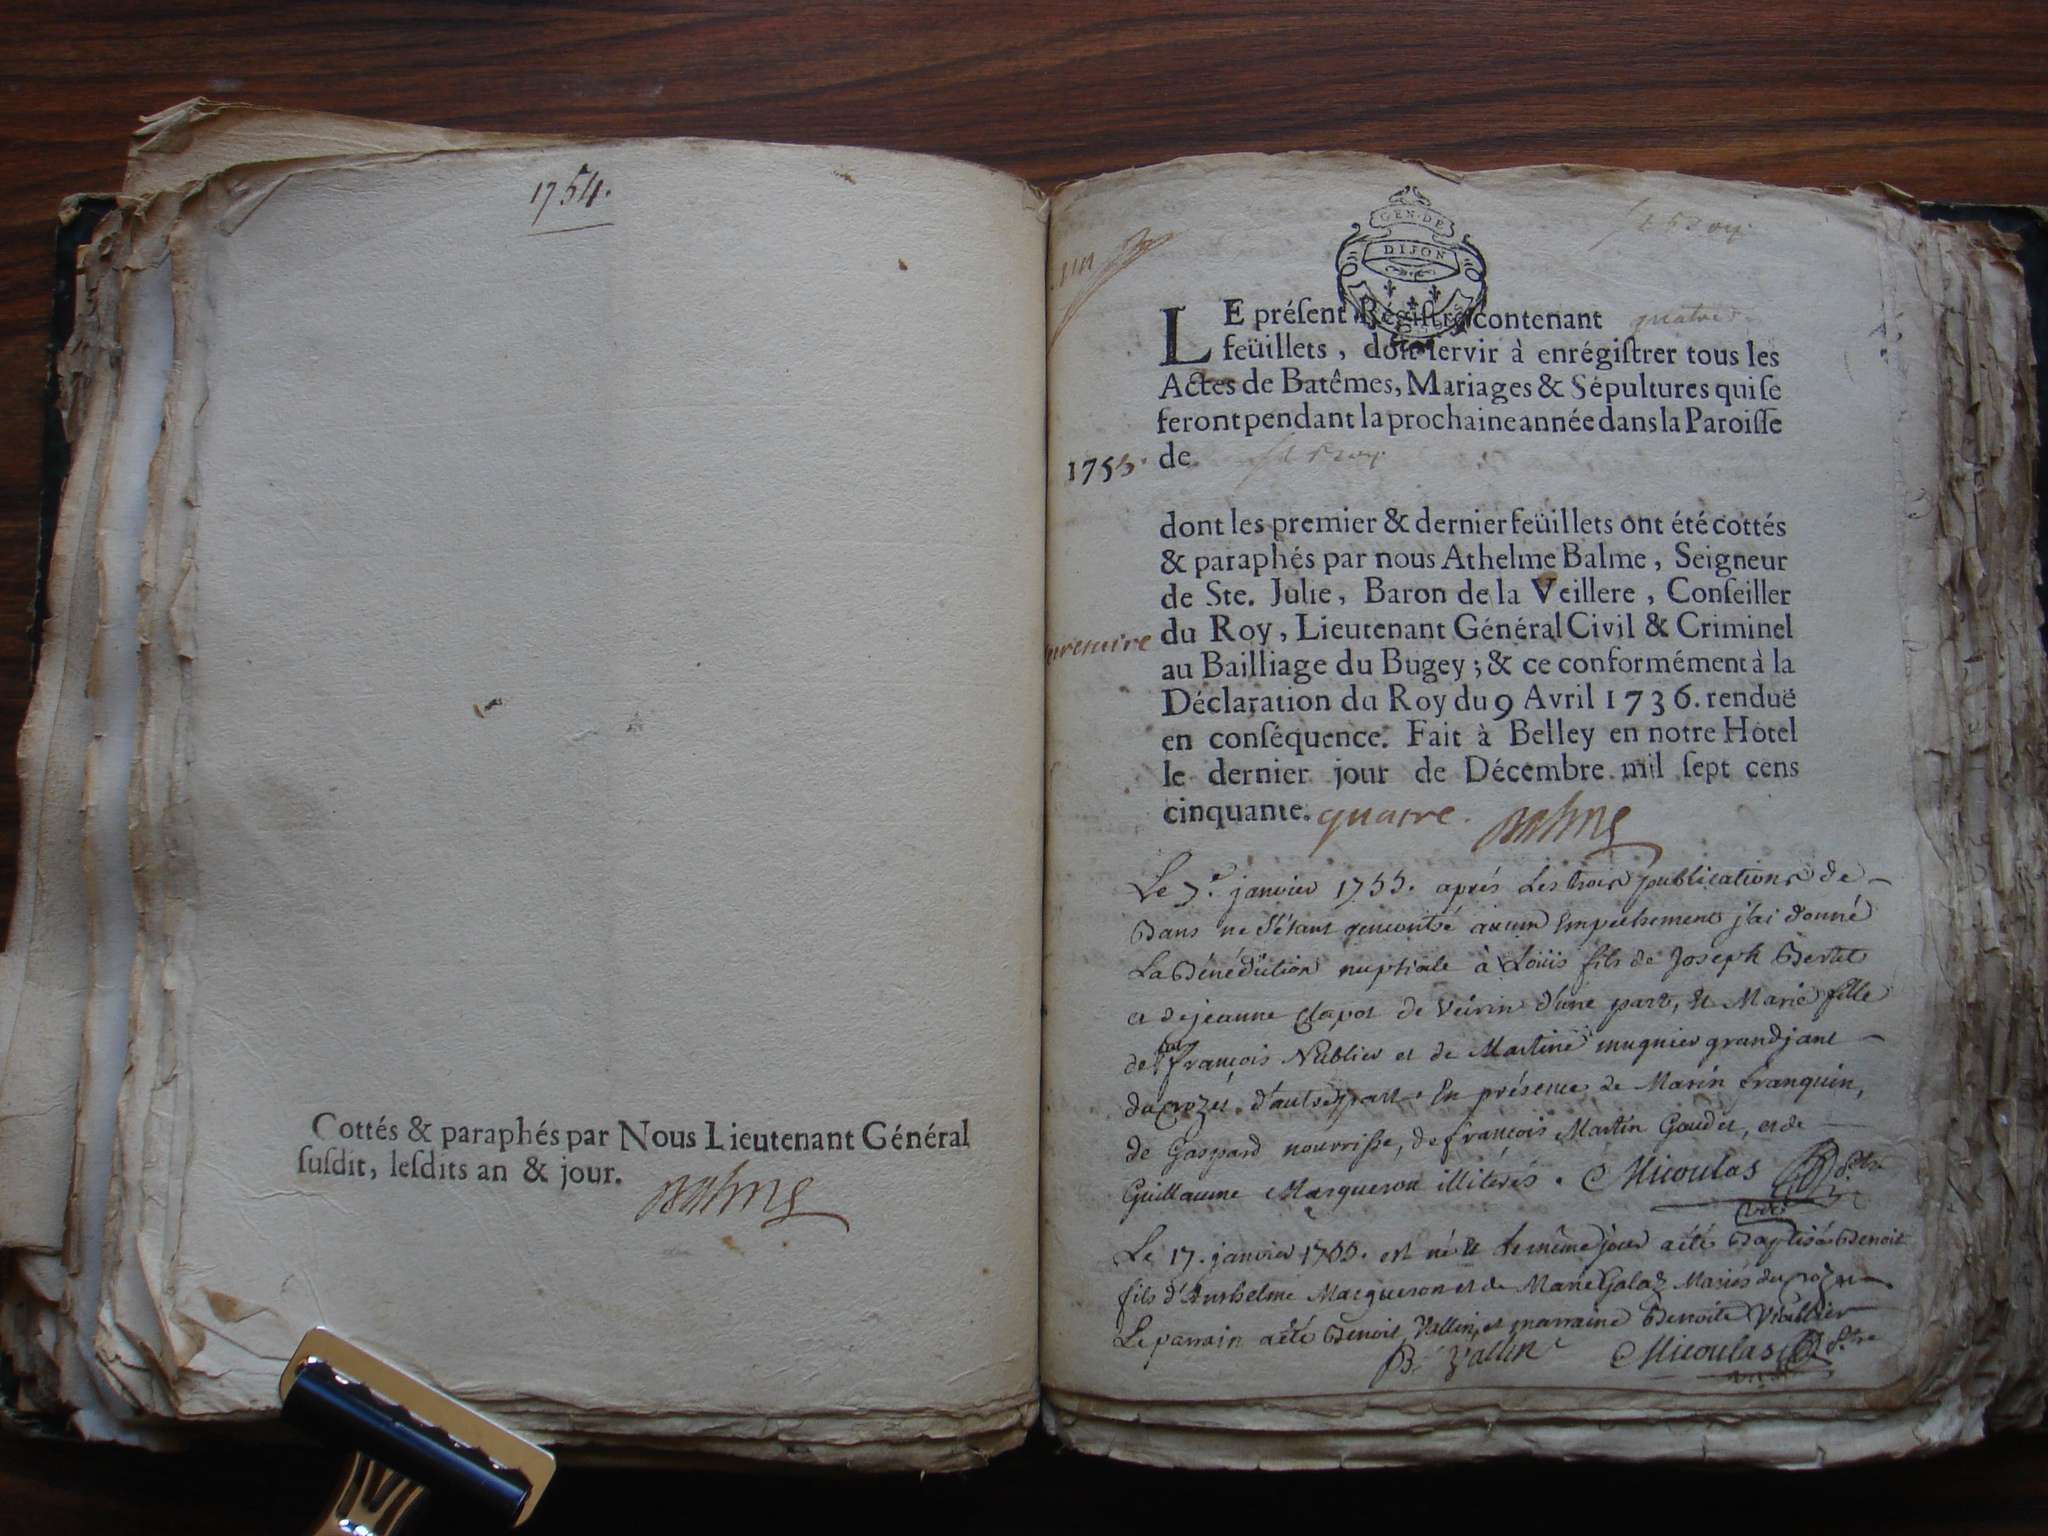 1754.
Cottés & paraphés par Nous Lieutenant Général
ſuſdit, leſdits an & jour.
GEN·DE
DIJON
LE préſent Régiſtre contenant quatre
feüillets, doit ſervir à enrégiſtrer tous les
Actes de Batêmes, Mariages & Sépultures qui ſe
feront pendant la prochaine année dans la Paroiſſe
1755. de
dont les premier & dernier feüillets ont été cottés
& paraphés par nous Athelme Balme, Seigneur
de Ste. Julie, Baron de la Veillere, Conſeiller
du Roy, Lieutenant Général Civil & Criminel
au Bailliage du Bugey; & ce conformément à la
Déclaration du Roy du 9 Avril 1736. renduë
en conſéquence. Fait à Belley en notre Hôtel
le dernier jour de Décembre mil ſept cens
cinquante. quatre. Balme
Le 7.e janvier 1755. aprés les trois publications de
Bans ne s'étant rencontré aucun Empechement j'ai donné
La Bénédiction nuptiale à Loüis fils de Joseph Bertet
et de jeanne Clapot de Veirin d'une part, et Marie fille
de françois Nublier et de Martine mugnier grandjant
du d'autre part. En présence de Marin franquin,
de Gaspard nourrisse, de françois Martin Goudet, et de
Guillaume Marqueron illiterés. Micoulas
Le 17. janvier 1755. est né et le même jour a été Baptisé Benoit
fils d'Anthelme Marqueron et de Marie Galaz Mariés du
Le parrain a été Benoit Vallin, et marraine Benoite
B. Vallin Micoulas